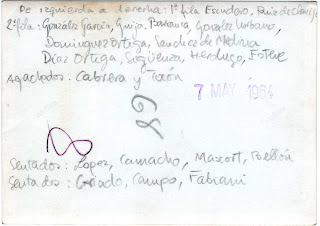 De izquierda a derecha: 1ª fila Escudero, Ruiz de
2ª fila: González García, Barranca, González Urbano,
Domínguez Ortega, Sánchez de Medina
Díaz Ortega, Sigüenza, Esteve
Agachados: Cabrera y
7 MAY 1964
68
Sentados: López, Camacho, Mascort, Bellón
Sentados: Criado, Campos, Fabiani